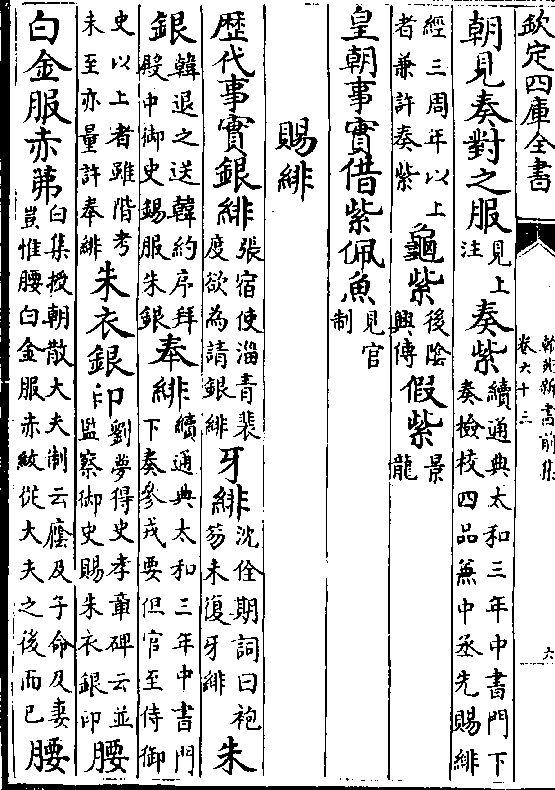 欽定四庫全書
翰苑新書前集
卷六十三
六
朝見奏對之服見上注奏紫續通典太和三年中書門下奏檢校四品兼中丞先賜緋
經三周年以上者兼許奏紫龜紫後陰興傳假紫景龍
皇朝事實借紫佩魚見官制
賜緋
歴代事實銀緋張宿使淄青裴度欲為請銀緋牙緋沈佺期詞曰袍笏未復牙緋朱
銀韓退之送韓約序拜殿中御史錫服朱銀奉緋續通典太和三年中書門下奏參戎要但官至侍御
史以上者雖階考未至亦量許奉緋朱衣銀印劉夢得史孝章碑云並監察御史賜朱衣銀印腰
白金服赤芾白集授朝散大夫制云廕及子命及妻豈惟腰白金服赤紱從大夫之後而已腰